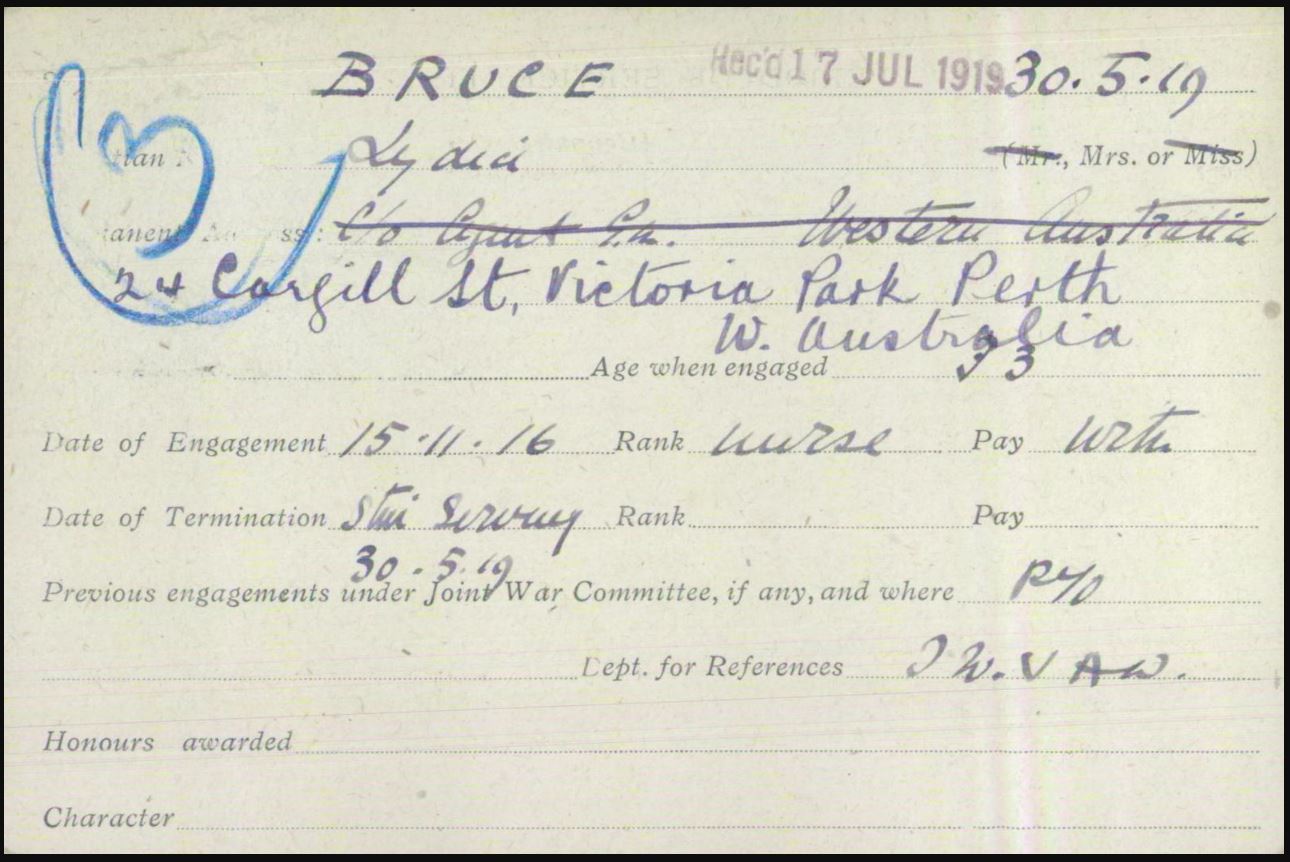 BRUCE Rec'd 17 JUL 1919 30.5.19
tian Lydia (Mr., Mrs. or Miss)
anent ss: C/o Agent Western Australia
24 Cargill St, Victoria Park Perth
W. Australia
Age when engaged 33
Date of Engagement 15.11.16 Rank nurse Pay
Date of Termination Still Serving Rank Pay
30.5.19
Previous engagements under Joint War Committee, if any, and where
Dept. for References J W. V A D.
Honours awarded
Character